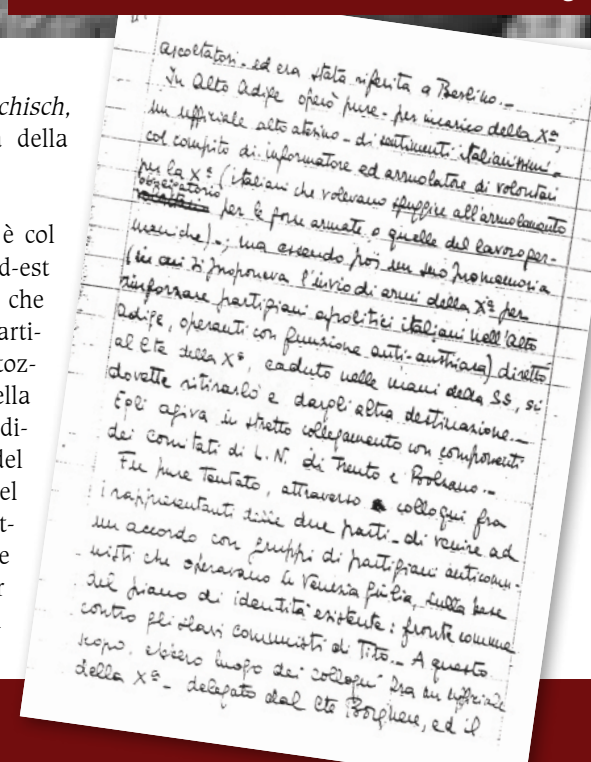 chisch,
della
è col
d-est
che
arti-
toz-
ella
di-
del
el
t-
e
r
ascoltatori - ed era stata riferita a Berlino. -
In Alto Adige operò pure - per incarico della Xª
un ufficiale alto atesino - di sentimenti italianissimi -
col compito di informatore ed arruolatore di volontari
per la Xª (italiani che volevano sfuggire all'arruolamento
obbligatorio
per le forze armate o quelle del lavoro ger-
maniche) -; ma essendo poi un suo promemoria
(in cui si proponeva l'invio di armi della Xª per
rinforzare partigiani apolitici italiani nell'Alto
Adige, operanti con funzione anti-austriaca) diretto
al Cte della Xª, caduto nelle mani della SS, si
dovette ritirarlo e dargli altra destinazione. -
Egli agiva in stretto collegamento con componenti
dei comitati di L. N. di Trento e Bolzano. -
Fu pure tentato, attraverso colloqui fra
i rappresentanti delle due parti - di venire ad
un accordo con gruppi di partigiani anticomu-
nisti che operavano in Venezia Giulia, sulla base
del piano di identità esistente: fronte comune
contro gli slavi comunisti di Tito. - A questo
scopo, ebbero luogo dei colloqui fra un ufficiale
della Xª - delegato dal Cte Borghese, ed il